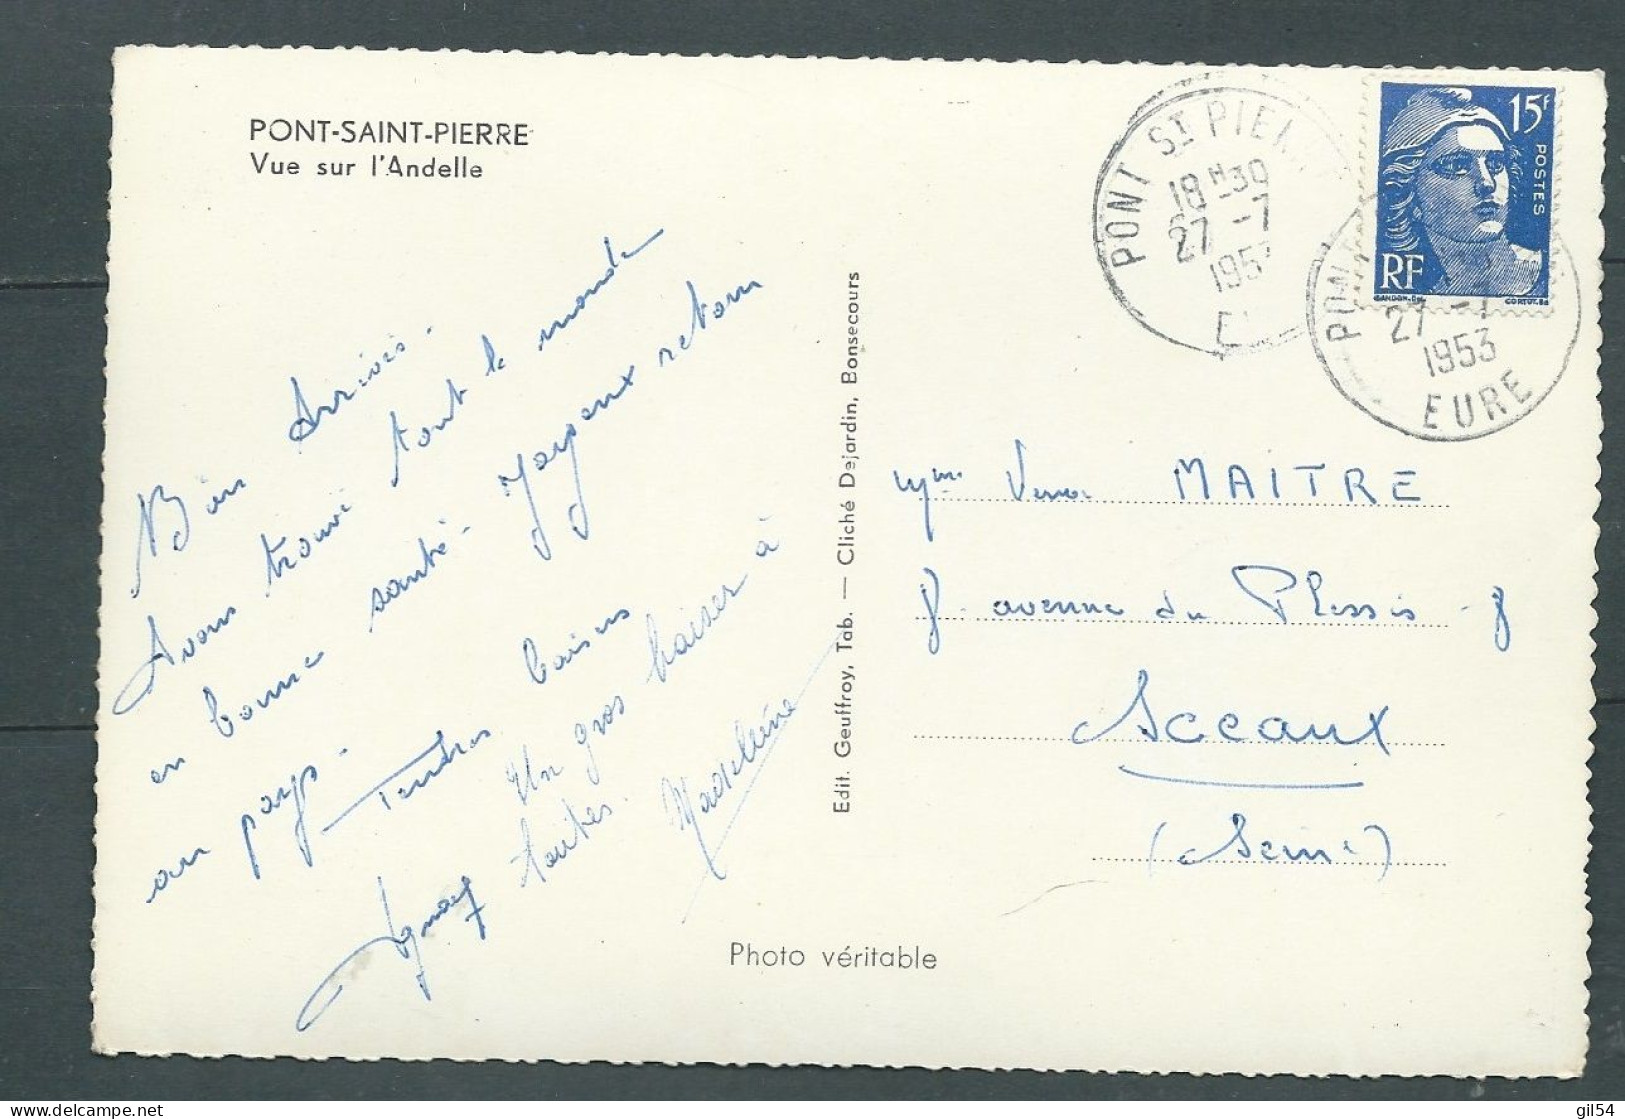 PONT-SAINT-PIERRE
Vue sur l'Andelle
Bien Arrivés.
Avons trouvé tout le monde
en bonne santé. Joyeux retour
au pays.
Tendres baisers
Un gros baiser à
toutes.
Madeleine
Edit. Geuffroy, Tab. — Cliché Dejardin, Bonsecours
Photo véritable
PONT ST PIER
18 H30
27 -7
1953
15F
POSTES
RF
GANDON.
CORTOT.
PON
27 -7
1953
EURE
Mme MAITRE
8 avenue du Plessis 8
Sceaux
(Seine)
gil54